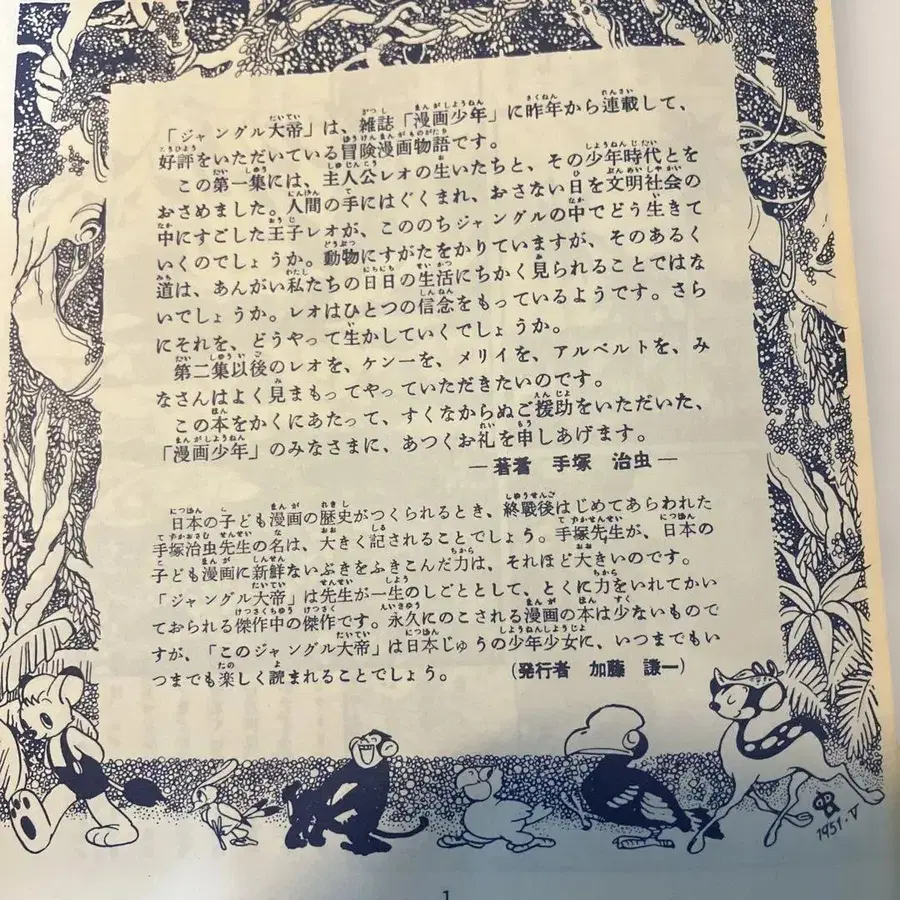 「ジャングル大帝」は、雑誌「漫画少年」に昨年から連載して、
好評をいただいている冒険漫画物語です。
この第一集には、主人公レオの生いたちと、その少年時代とを
おさめました。人間の手にはぐくまれ、おさない日を文明社会の
中にすごした王子レオが、こののちジャングルの中でどう生きて
いくのでしょうか。動物にすがたをかりていますが、そのあるく
道は、あんがい私たちの日日の生活にちかく見られることではな
いでしょうか。レオはひとつの信念をもっているようです。さら
にそれを、どうやって生かしていくでしょうか。
第二集以後のレオを、ケン一を、メリイを、アルベルトを、み
なさんはよく見まもってやっていただきたいのです。
この本をかくにあたって、すくなからぬご援助をいただいた、
「漫画少年」のみなさまに、あつくお礼を申しあげます。
―著者 手塚 治虫―
日本の子ども漫画の歴史がつくられるとき、終戦後はじめてあらわれた
手塚治虫先生の名は、大きく記されることでしょう。手塚先生が、日本の
子ども漫画に新鮮ないぶきをふきこんだ力は、それほど大きいのです。
「ジャングル大帝」は先生が一生のしごととして、とくに力をいれてかい
ておられる傑作中の傑作です。永久にのこされる漫画の本は少ないもので
すが、「このジャングル大帝」は日本じゅうの少年少女に、いつまでもい
つまでも楽しく読まれることでしょう。 (発行者 加藤 謙一)
1951・V
1